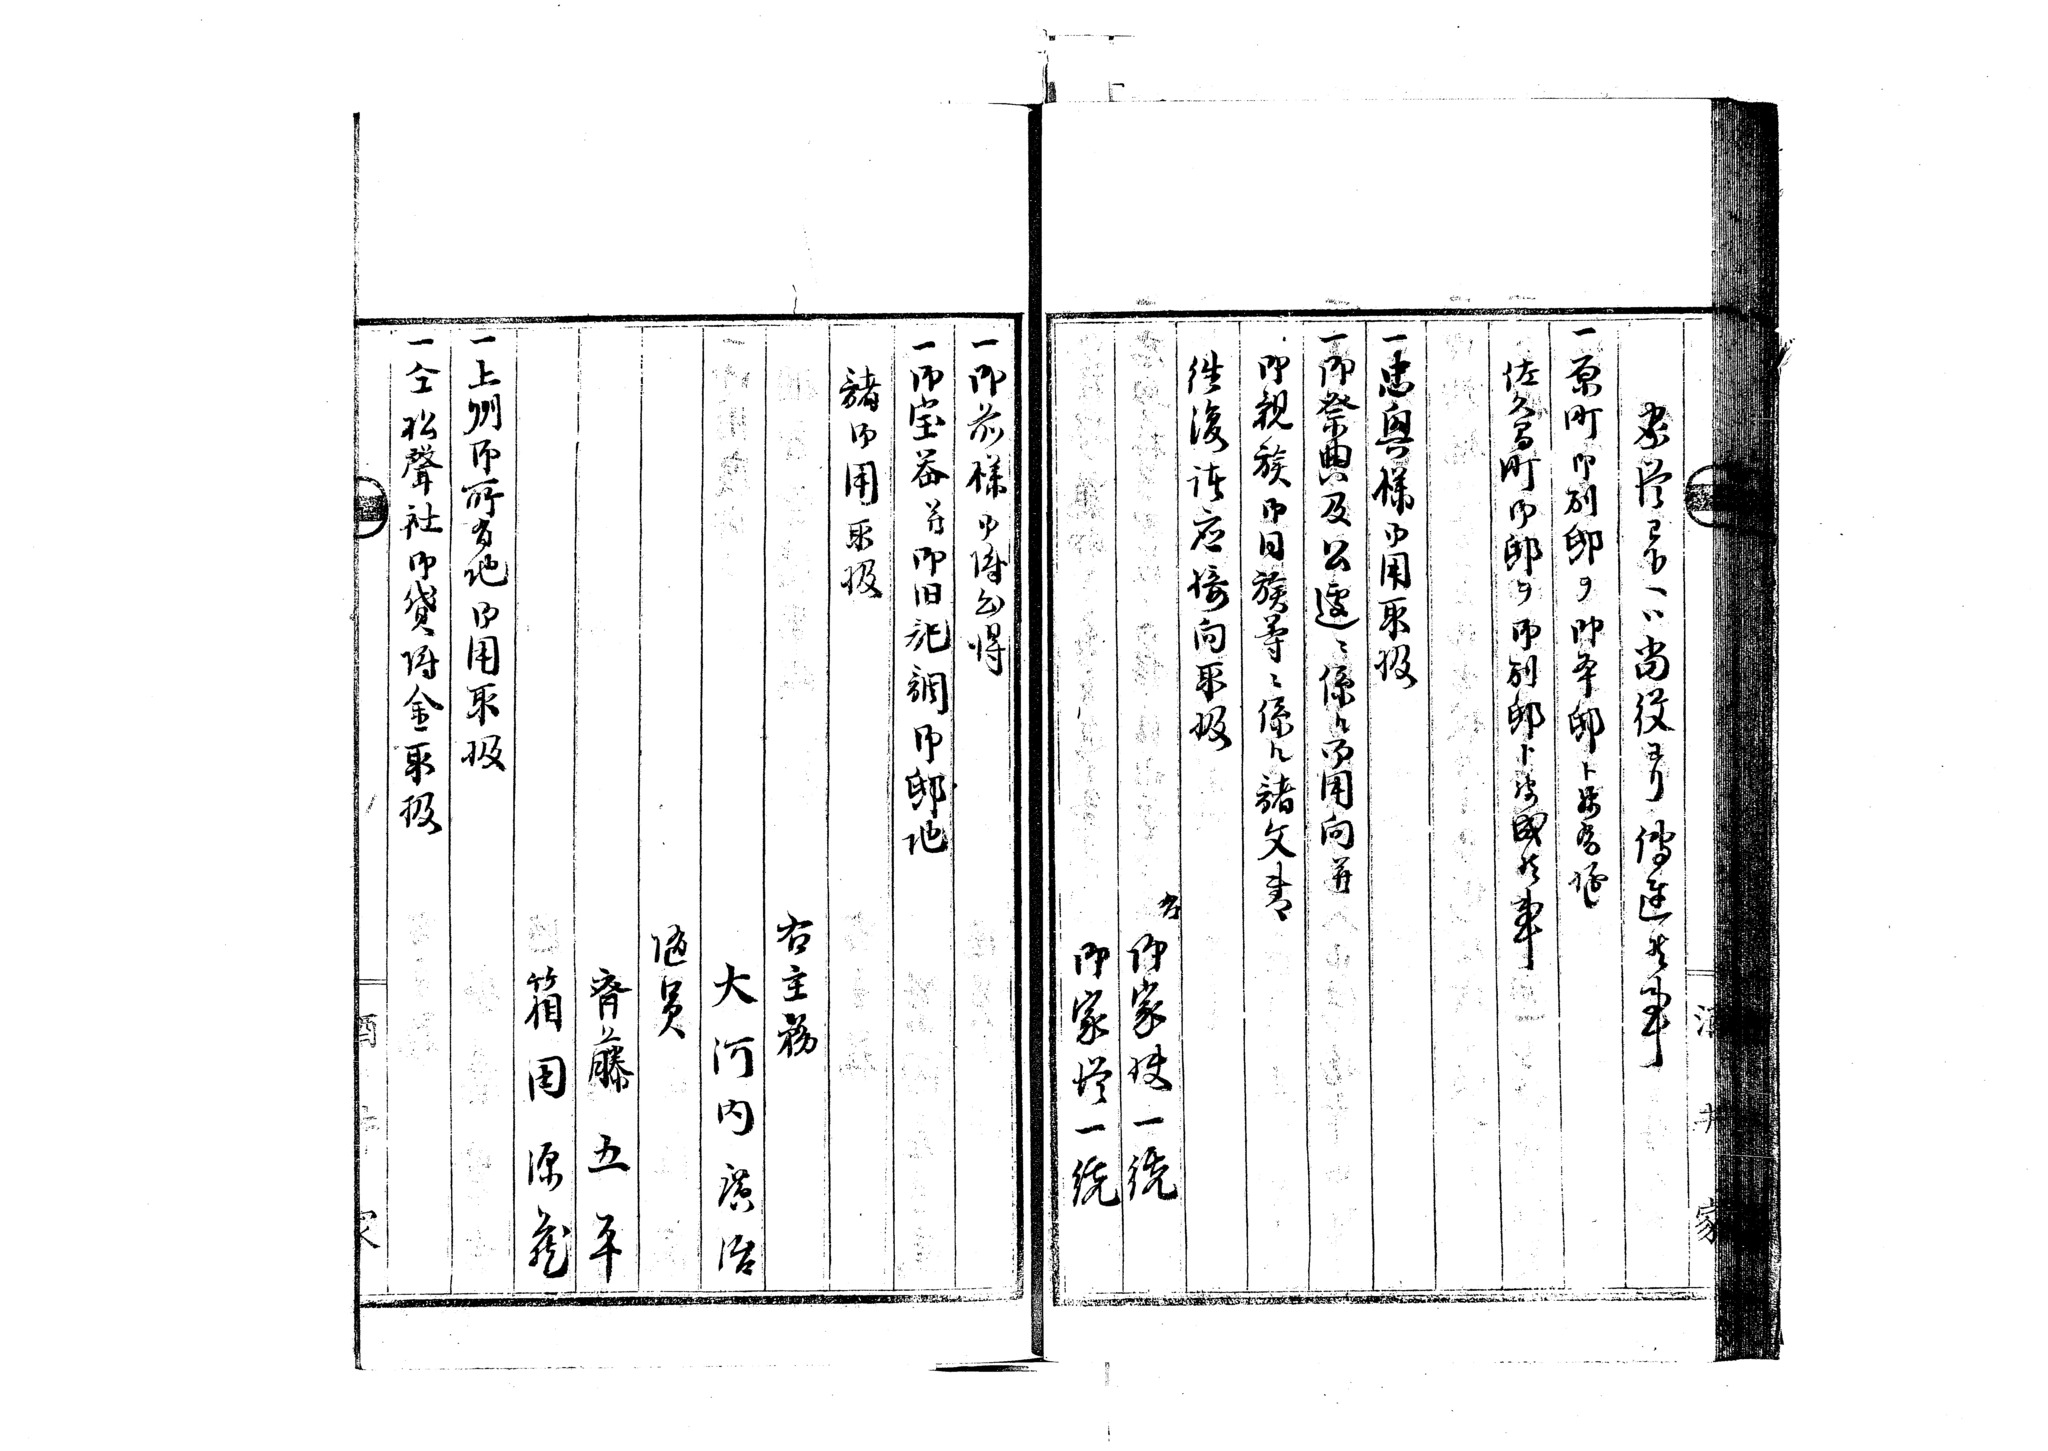 家従己下一同ハ当役ヨリ傳達候事
一原町御別邸ヲ御本邸ト唱替
佐久間町御邸ヲ御別邸ト被成候事
一忠興様御用取扱
一御祭典及公邊ニ係ル御用向并
御親族御同族等ニ係ル諸文書
往復諸応接向取扱
右
御家扶一統
御家従一統
一御前様御附心得
一御宝器并御旧記調御邸地
諸御用取扱
右主務
大河内廣治
随員
齊藤五平
箱田源蔵
一上州御所有地御用取扱
一仝松聲社御貸附金取扱
酒井家
酒井家